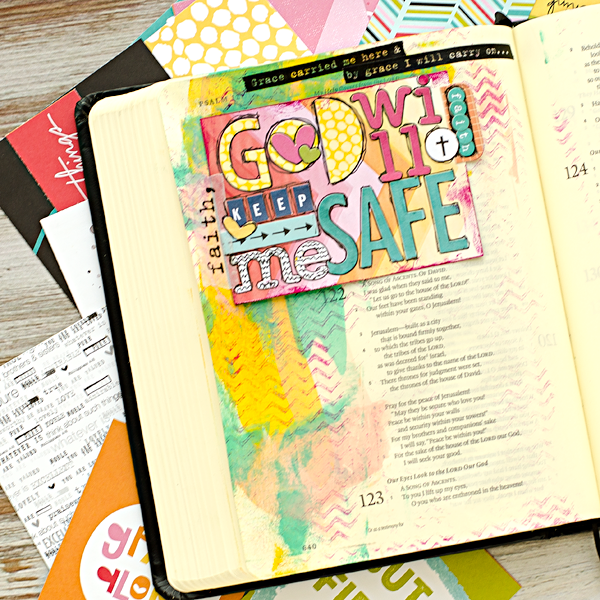 Grace carried me here &
by grace I will carry on...
PSALM
GOD will
faith
faith,
KEEP
me SAFE
things
122
A SONG OF ASCENTS. OF DAVID.
I was glad when they said to me,
"Let us go to the house of the LORD!"
Our feet have been standing
within your gates, O Jerusalem!
Jerusalem—built as a city
that is bound firmly together,
to which the tribes go up,
the tribes of the LORD,
as was decreed for Israel,
to give thanks to the name of the LORD.
There thrones for judgment were set,
the thrones of the house of David.
Pray for the peace of Jerusalem!
"May they be secure who love you!
Peace be within your walls
and security within your towers!"
For my brothers and companions' sake
I will say, "Peace be within you!"
For the sake of the house of the LORD our God,
I will seek your good.
Our Eyes Look to the LORD Our God
123
A SONG OF ASCENTS.
To you I lift up my eyes,
O you who are enthroned in the heavens!
640
124